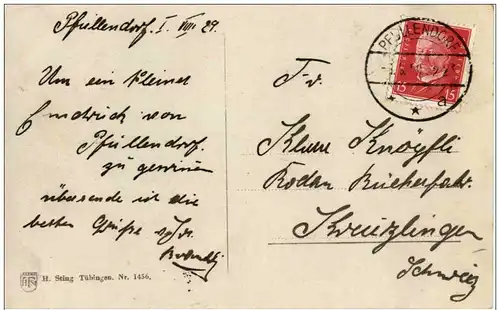 Pfullendorf. I. VIII 29.
Um ein kleinen
Eindruck von
Pfullendorf.
zu gewinnen
übersende ich die
besten Grüße
H. Sting Tübingen. Nr. 1456.
PFULLENDORF
15 15
Fr.
Knöpfli
Kreuzlingen
Schweiz